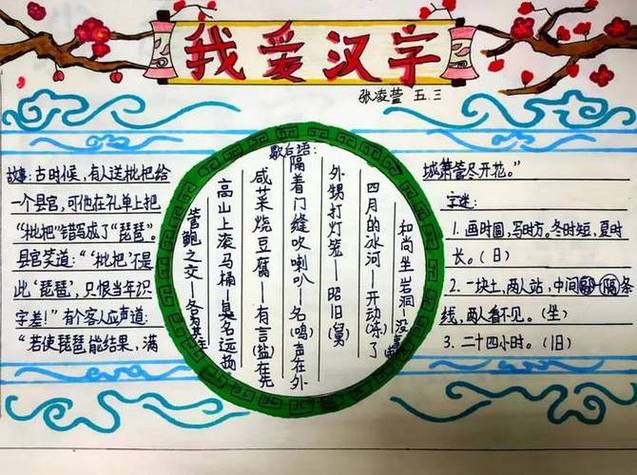 我爱汉字
张凌萱 五.三
故事:古时候,有人送枇杷给
一个县官,可他在礼单上把
“枇杷”错写成了“琵琶”。
县官笑道:“‘枇杷’不是
此‘琵琶’,只恨当年识
字差!”有个客人应声道:
“若使琵琶能结果,满
歇后语:
和尚坐岩洞—没
四月的冰河—开动(冻)了
外甥打灯笼—照旧(舅)
隔着门缝吹喇叭—名(鸣)声在外
咸菜烧豆腐—有言(盐)在先
高山上滚马桶—臭名远扬
管鲍之交—各为其主
城箫管尽开花。”
字谜:
1.画时圆,写时方。冬时短,夏时
长。(日)
2.一块土,两人站,中间 一隔条
线,两人看不见。(坐)
3.二十四小时。(旧)